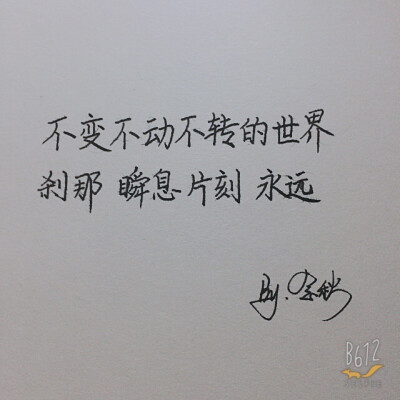 不变不动不转的世界
刹那 瞬息片刻 永远
By.
B612